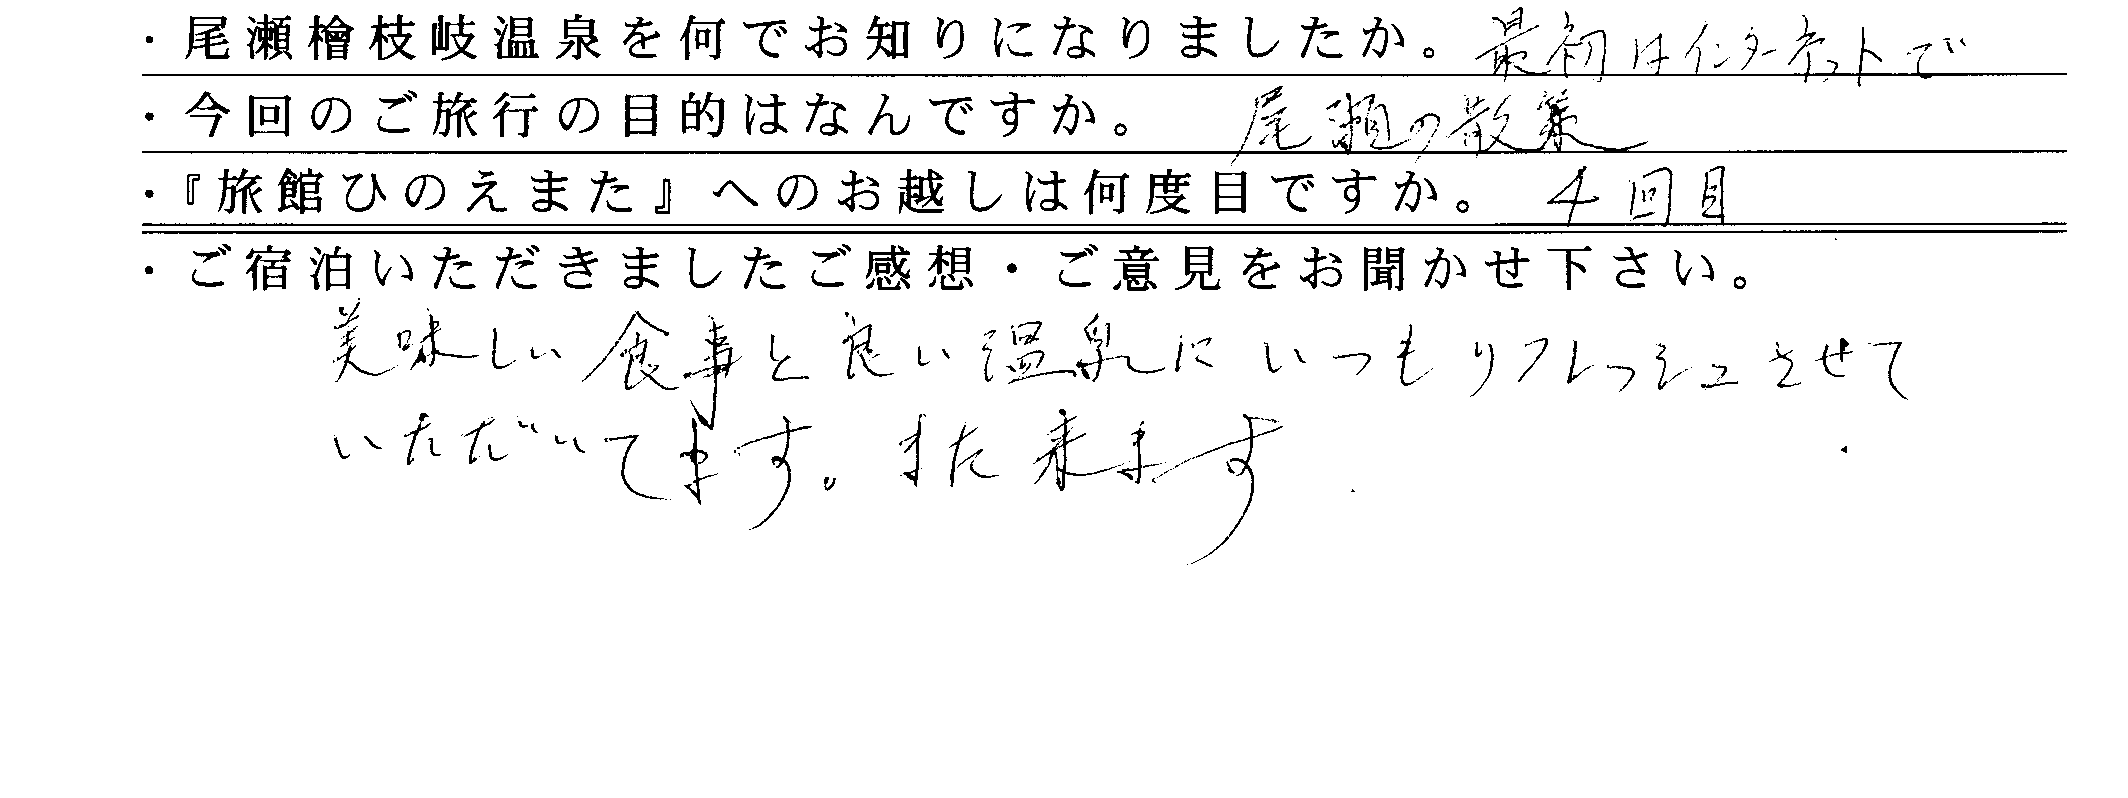 ・尾瀬檜枝岐温泉を何でお知りになりましたか。最初はインターネットで
・今回のご旅行の目的はなんですか。 尾瀬の散策
・『旅館ひのえまた』へのお越しは何度目ですか。 4回目
・ご宿泊いただきましたご感想・ご意見をお聞かせ下さい。
美味しい食事と良い温泉にいつもリフレッシュさせて
いただいてます。また来ます